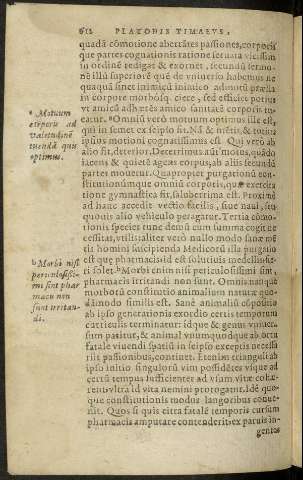 612 PLATONIS TIMAEVS,
quadā cōmotione aberrātes passiones, corporis
que partes cognationis ratione seruata vicissim
in ordinē redigat & exornet, secundū sermo-
nē illū superiorē quē de vniuerso habemus ne
quaquā sinet inimicū inimico admotū prælia
in corpore morbosq; ciere, sed efficiet potius
vt amicū adhærēs amico sanitatē corporis tu-
eatur. Omniū verò motuum optimus ille est,
qui in semet ex seipso fit. Nā & mētis, & totius
ipsius motioni cognatissimus est. Qui verò ab
alio fit, deterior. Deterrimus autē motus, quādo
iacens & quietē agens corpus, ab aliis secundū
partes mouetur. Quapropter purgationū con-
stitutionūmque omniū corporis, quæ exercita
tione gymnastica fit, saluberrima est. Proximè
ad hanc accedit vectio facilis, siue naui, seu
quouis alio vehiculo peragatur. Tertia cōmo-
tionis species tunc demū cum summa cogit ne
cessitas, vtilis: aliter verò nullo modo sanæ mē
tis homini suscipienda Medicorū illa purgatio
est quæ pharmacis id est solutiuis medellis fie-
ri solet. Morbi enim nisi periculosissimi sint,
pharmacis irritandi non sunt. Omnis namque
morborū constitutio animalium naturæ quo-
dāmodo similis est. Sanè animaliū cōpositio
ab ipso generationis exordio certis temporum
curriculis terminatur: idque & genus vniuer-
sum patitur, & animal vnumquodque ab ortu
fatale viuendi spatiū in seipso exceptis necessa
riis passionibus, continet. Etenim trianguli ab
ipso initio singulorū vim possidētes vsque ad
certū tempus sufficienter ad vsum vitæ cohæ-
rent: vltra id vita nemini prorogatur. Idē quo-
que constitutionis modus languoribus conue-
nit. Quos si quis citra fatalē temporis cursum
pharmacis amputare contenderit: ex paruis in-
gentes
* Motuum
corporis ad
valetudinē
tuendā quis
optimus.
b Morbi nisi
periculosissi-
mi sint phar
macis non
sunt irritan-
di.